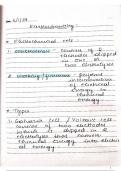 Electrochemistry
* Electrochemical cell
consists of 2
electrodes dipped
in one or
two electrolytes
of chemical
energy to
chemical
energy
* Types
1. Galvanic cell / Voltaic cell
consists of two electrodes
which is dipped in 2
electrolytes that converts
chemical energy into electri
cal energy